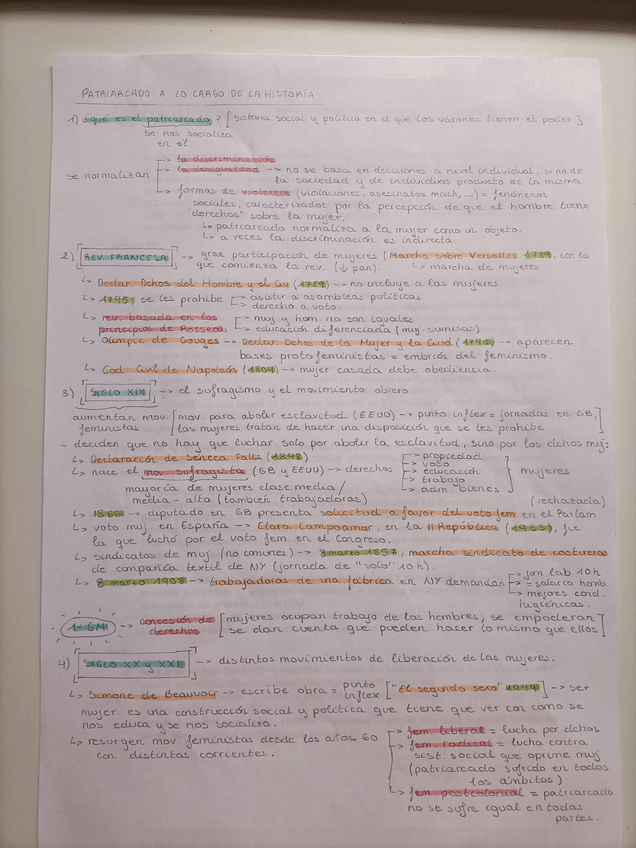 PATRIARCADO A LO LARGO DE LA HISTORIA
1) ¿qué es el patriarcado? [sistema social y político en el que los varones tienen el poder]
se nos socializa
en él
se normalizan
↳ la discriminación
↳ la desigualdad → no se basa en decisiones a nivel individual, si no de
la sociedad y de individuos producto de la misma
↳ formas de violencia (violaciones, asesinatos mach,...) = fenómenos
sociales, caracterizados por la percepción de que el hombre tiene
"derechos" sobre la mujer.
↳ patriarcado normaliza a la mujer como un objeto.
↳ a veces la discriminación es indirecta.
2) [REV. FRANCESA] → gran participación de mujeres (Marcha sobre Versalles 1789, con la
que comienza la rev. (↓ pan). ↳ marcha de mujeres
↳ Declar. Dchos del Hombre y el Ciu (1789) → no incluye a las mujeres
↳ 1795, se les prohibe → asistir a asambleas políticas
→ derecho a voto.
↳ rev. basada en los
principios de Rosseau
→ muj y hom no son iguales
→ educación diferenciada (muj sumisas)
↳ Olimpie de Gouges → Declar. Dchos de la Mujer y la Ciud (1791) → aparecen
bases protofeministas = embrión del feminismo.
↳ Cod. Civil de Napoleón (1804) → mujer casada debe obediencia.
3) [SIGLO XIX] → el sufragismo y el movimiento obrero.
aumentan mov.
feministas
[mov. para abolir esclavitud (EEUU) → punto inflex = jornadas en GB
las mujeres tratan de hacer una disposición que se les prohibe]
- deciden que no hay que luchar solo por abolir la esclavitud, sino por los dchos muj:
↳ Declaración de Seneca Falls (1848)
↳ nace el mov. sufragista (GB y EEUU) → derechos
→ propiedad
→ voto
→ educación
→ trabajo
→ adm bienes
} mujeres
mayoría de mujeres clase media/
media-alta (también trabajadoras)
(rechazada)
↳ → diputado en GB presenta solicitud a favor del voto fem en el Parlam.
↳ voto muj. en España → Clara Campoamor, en la II República, fue
la que luchó por el voto fem. en el Congreso.
↳ sindicatos de muj (no comunes) → 8 marzo 1857, marcha sindicato de costureras
de compañía textil de NY (jornada de "solo" 10h).
↳ 8 marzo 1908 → trabajadoras de una fábrica en NY demandan
→ jorn lab 10h
→ = salario homb
→ mejores cond.
higiénicas.
1ª GM → concesión de
derechos
[mujeres ocupan trabajo de los hombres, se empoderan
se dan cuenta que pueden hacer lo mismo que ellos]
4) [SIGLO XX y XXI] → distintos movimientos de liberación de las mujeres.
↳ Simone de Beauvoir → escribe obra = punto
inflex
["El segundo sexo" 1949] → ser
mujer es una construcción social y política que tiene que ver con como se
nos educa y se nos socializa.
↳ resurgen mov. feministas desde los años 60
con distintas corrientes.
→ fem liberal = lucha por dchos
→ fem. radical = lucha contra
sist. social que oprime muj
(patriarcado sufrido en todos
los ámbitos)
↳ fem postcolonial = patriarcado
no se sufre igual en todas
partes.